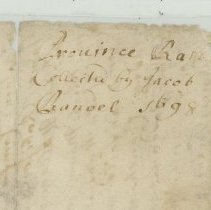 Province Rate
Collected by Jacob
1698